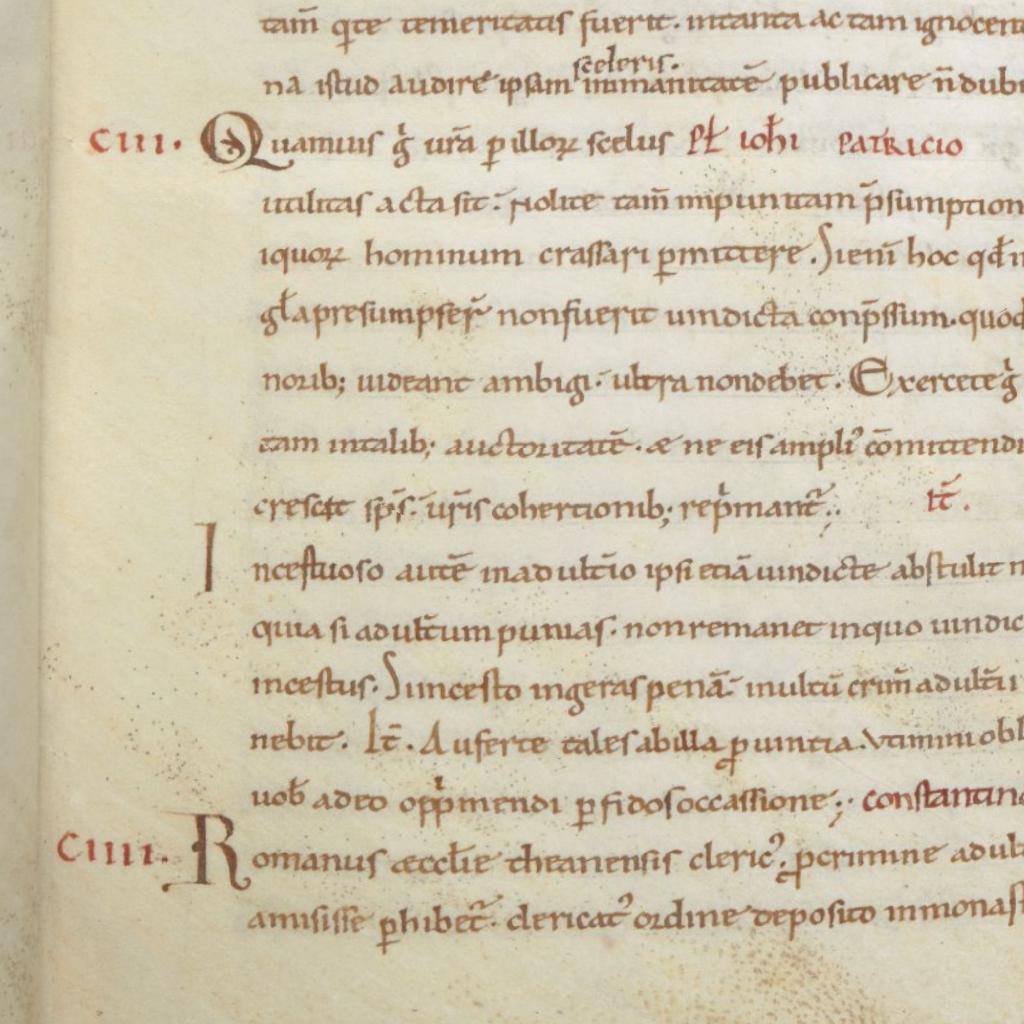 tam̄ qte temeritatis fuerit. intanta ac tam ignocent
sceleris.
na istud audire ipsam inmanitatē publicare n̄ dubi
CIII. Quamuis g̊ ur̄a ꝑ illoꝝ scelus PŁ ioħi PATRICIO
utilitas acta sit. nolite tam̄ inpunitam p̄sumption
iquoꝝ hominum crassari ꝑmittere. Si eni̅ hoc qđ
gła presumpser̄ non fuerit uindicta conp̄ssum. quod
norib; uideant ambigi. ultra non debet. Exercete g̊
tam in talib; auctoritatē. & ne eis ampliꝰ com̄ittendi
sp̄s. ur̄is cohertionib; rep̄mant̄. IT̄.
Incestuoso autē in adult̄io ipsi etiā uindicte abstulit
quia si adult̄um punias. non remanet in quo uindic
incestus. Si incesto ingeras penā. inultū crim̄ adult̄ii
nebit. It̄. Auferte tales ab illa ꝓuintia. Ut inimi obl
uob̄ adeo opp̄mendi ꝑfidos occassione; constantino
CIIII. Romanus æccłie theanensis clericꝰ. ꝓ crimine adult
amisisse ꝑhibet̄. clericatꝰ ordine deposito in monast